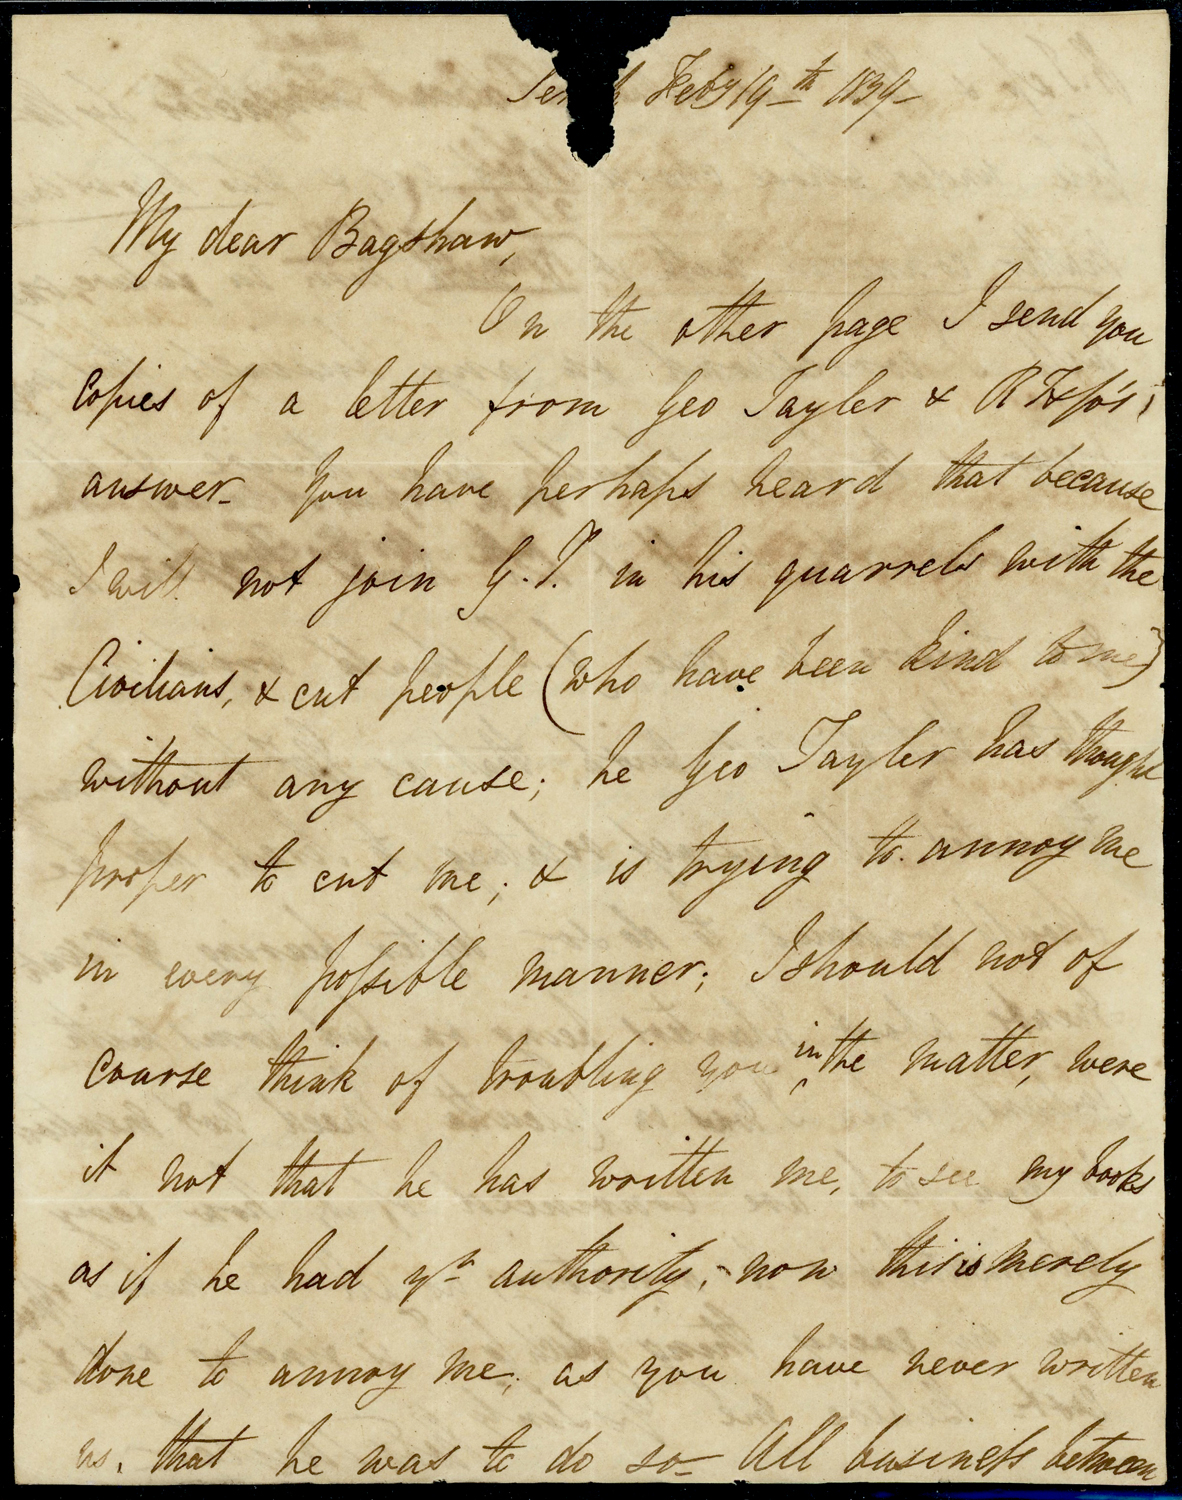 Feby 19th 1839
My dear Bagshaw,
On the other page I send you
copies of a letter from Geo Tayler & R
answer. You have perhaps heard that because
I will not join G.T. in his quarrels with the
Civilians, & cut people (who have been kind to me)
without any cause; he Geo Tayler has thought
proper to cut me; & is trying to annoy me
in every possible manner; I should not of
course think of troubling you in the matter, were
it not that he has written me, to see my books
as if he had yr authority; now this is merely
done to annoy me; as you have never written
us, that he was to do so— All business between